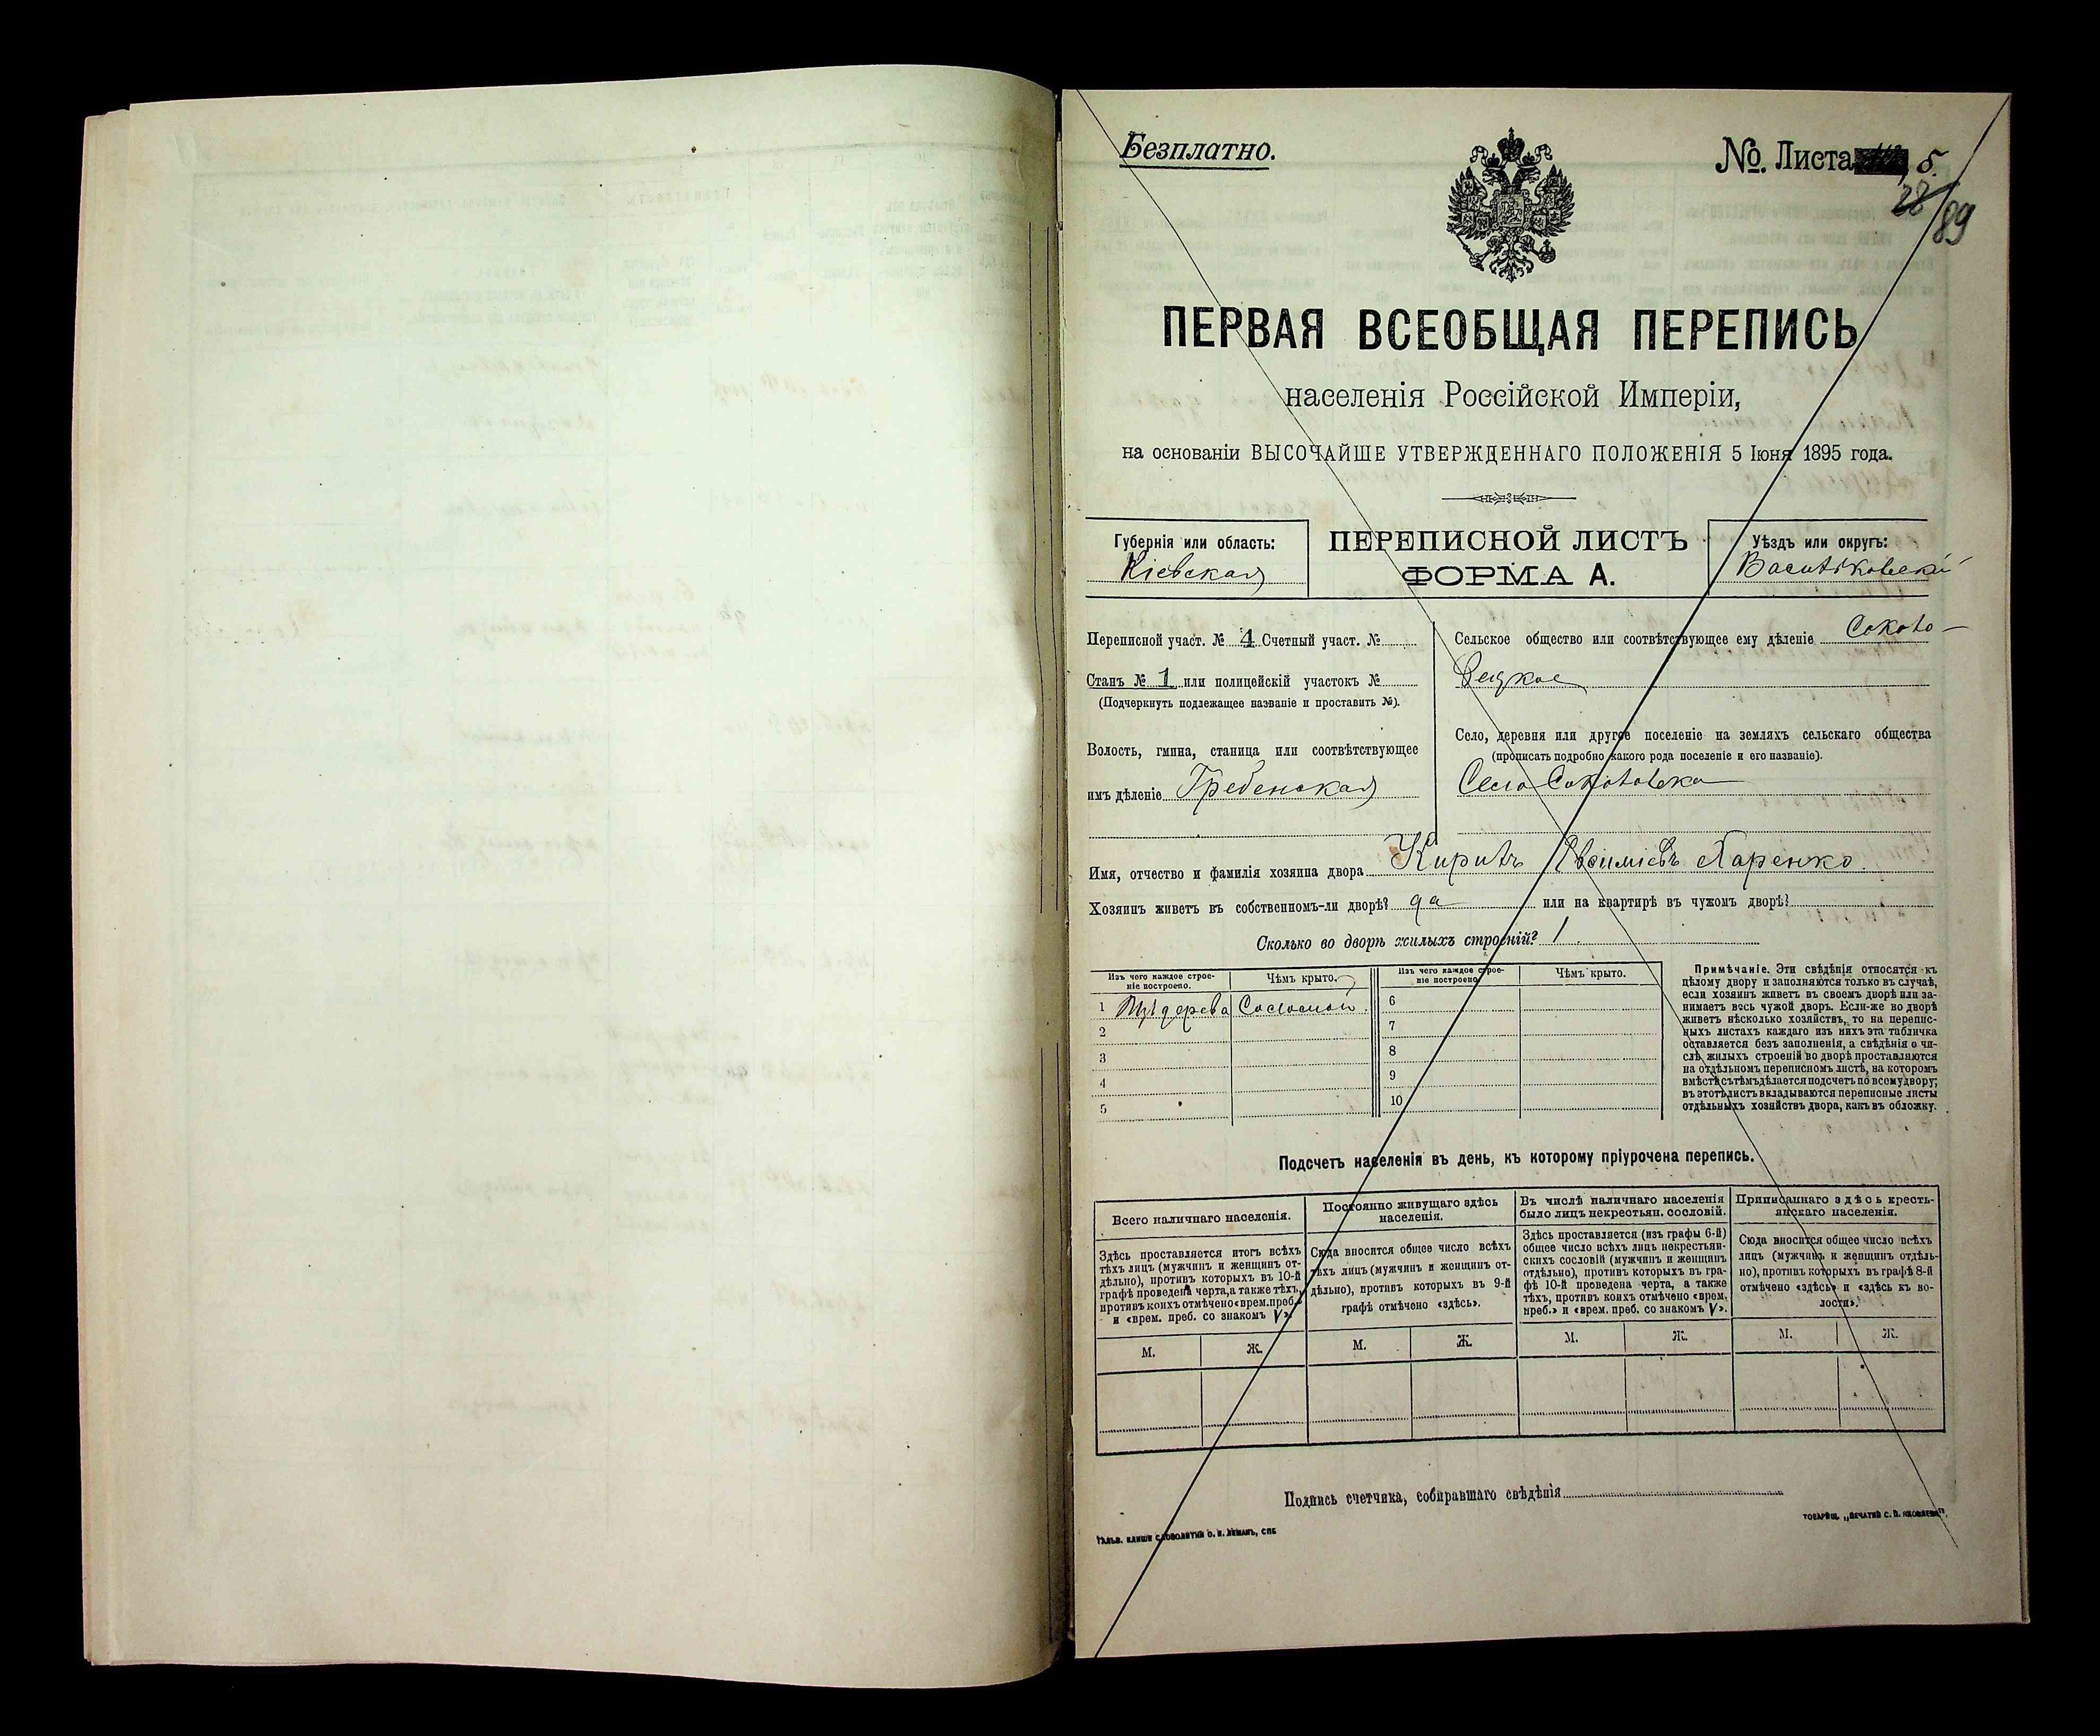 Безплатно.
№. Листа 5.
28
89
ПЕРВАЯ ВСЕОБЩАЯ ПЕРЕПИСЬ
населенія Россійской Имперіи,
на основаніи ВЫСОЧАЙШЕ УТВЕРЖДЕННАГО ПОЛОЖЕНІЯ 5 Іюня 1895 года.
Губернія или область:
Кіевская
ПЕРЕПИСНОЙ ЛИСТЪ
ФОРМА А.
Уѣздъ или округъ:
Васильковскій
Переписной участ. № 4 Счетный участ. №
Станъ № 1 или полицейскій участокъ №
(Подчеркнуть подлежащее названіе и проставить №).
Волость, гмина, станица или соотвѣтствующее
имъ дѣленіе Гребенская
Сельское общество или соотвѣтствующее ему дѣленіе Соколо-
Село, деревня или другое поселеніе на земляхъ сельскаго общества
(прописать подробно какого рода поселеніе и его названіе).
Село Соколовка
Имя, отчество и фамилія хозяина двора Кирилъ Евфиміевъ Харенко.
Хозяинъ живетъ въ собственномъ-ли дворѣ? да или на квартирѣ въ чужомъ дворѣ?
Сколько во дворѣ жилыхъ строеній? 1.
Изъ чего каждое строе-
ніе построено.
Чѣмъ крыто.
1 Изъ дерева Соломой.
2
3
4
5
Изъ чего каждое строе-
ніе построено.
Чѣмъ крыто.
6
7
8
9
10
Примѣчаніе. Эти свѣдѣнія относятся къ
цѣлому двору и заполняются только въ случаѣ,
если хозяинъ живетъ въ своемъ дворѣ или за-
нимаетъ весь чужой дворъ. Если-же во дворѣ
живетъ нѣсколько хозяйствъ, то на перепис-
ныхъ листахъ каждаго изъ нихъ эта табличка
оставляется безъ заполненія, а свѣдѣнія о чи-
слѣ жилыхъ строеній во дворѣ проставляются
на отдѣльномъ переписномъ листѣ, на которомъ
вмѣстѣ съ тѣмъ дѣлается подсчетъ по всему двору;
въ этотъ листъ вкладываются переписные листы
отдѣльныхъ хозяйствъ двора, какъ въ обложку.
Подсчетъ населенія въ день, къ которому пріурочена перепись.
Всего наличнаго населенія.
Здѣсь проставляется итогъ всѣхъ
тѣхъ лицъ (мужчинъ и женщинъ от-
дѣльно), противъ которыхъ въ 10-й
графѣ проведена черта, а также тѣхъ,
противъ коихъ отмѣчено «врем. преб.»
и «врем. преб. со знакомъ V».
М. Ж.
Постоянно живущаго здѣсь
населенія.
Сюда вносится общее число всѣхъ
тѣхъ лицъ (мужчинъ и женщинъ от-
дѣльно), противъ которыхъ въ 9-й
графѣ отмѣчено «здѣсь».
М. Ж.
Въ числѣ наличнаго населенія
было лицъ некрестьян. сословій.
Здѣсь проставляется (изъ графы 6-й)
общее число всѣхъ лицъ некрестьян-
скихъ сословій (мужчинъ и женщинъ
отдѣльно), противъ которыхъ въ гра-
фѣ 10-й проведена черта, а также
тѣхъ, противъ коихъ отмѣчено «врем.
преб.» и «врем. преб. со знакомъ V».
М. Ж.
Приписаннаго здѣсь кресть-
янскаго населенія.
Сюда вносится общее число всѣхъ
лицъ (мужчинъ и женщинъ отдѣль-
но), противъ которыхъ въ графѣ 8-й
отмѣчено «здѣсь» и «здѣсь къ во-
лости».
М. Ж.
Подпись счетчика, собиравшаго свѣдѣнія
ГАЛЬВ. КЛИШЕ СЛОВОЛИТНИ О. И. ЛЕМАНЪ, СПБ
ТОВАРИЩ. „ПЕЧАТНЯ С. П. ЯКОВЛЕВА".